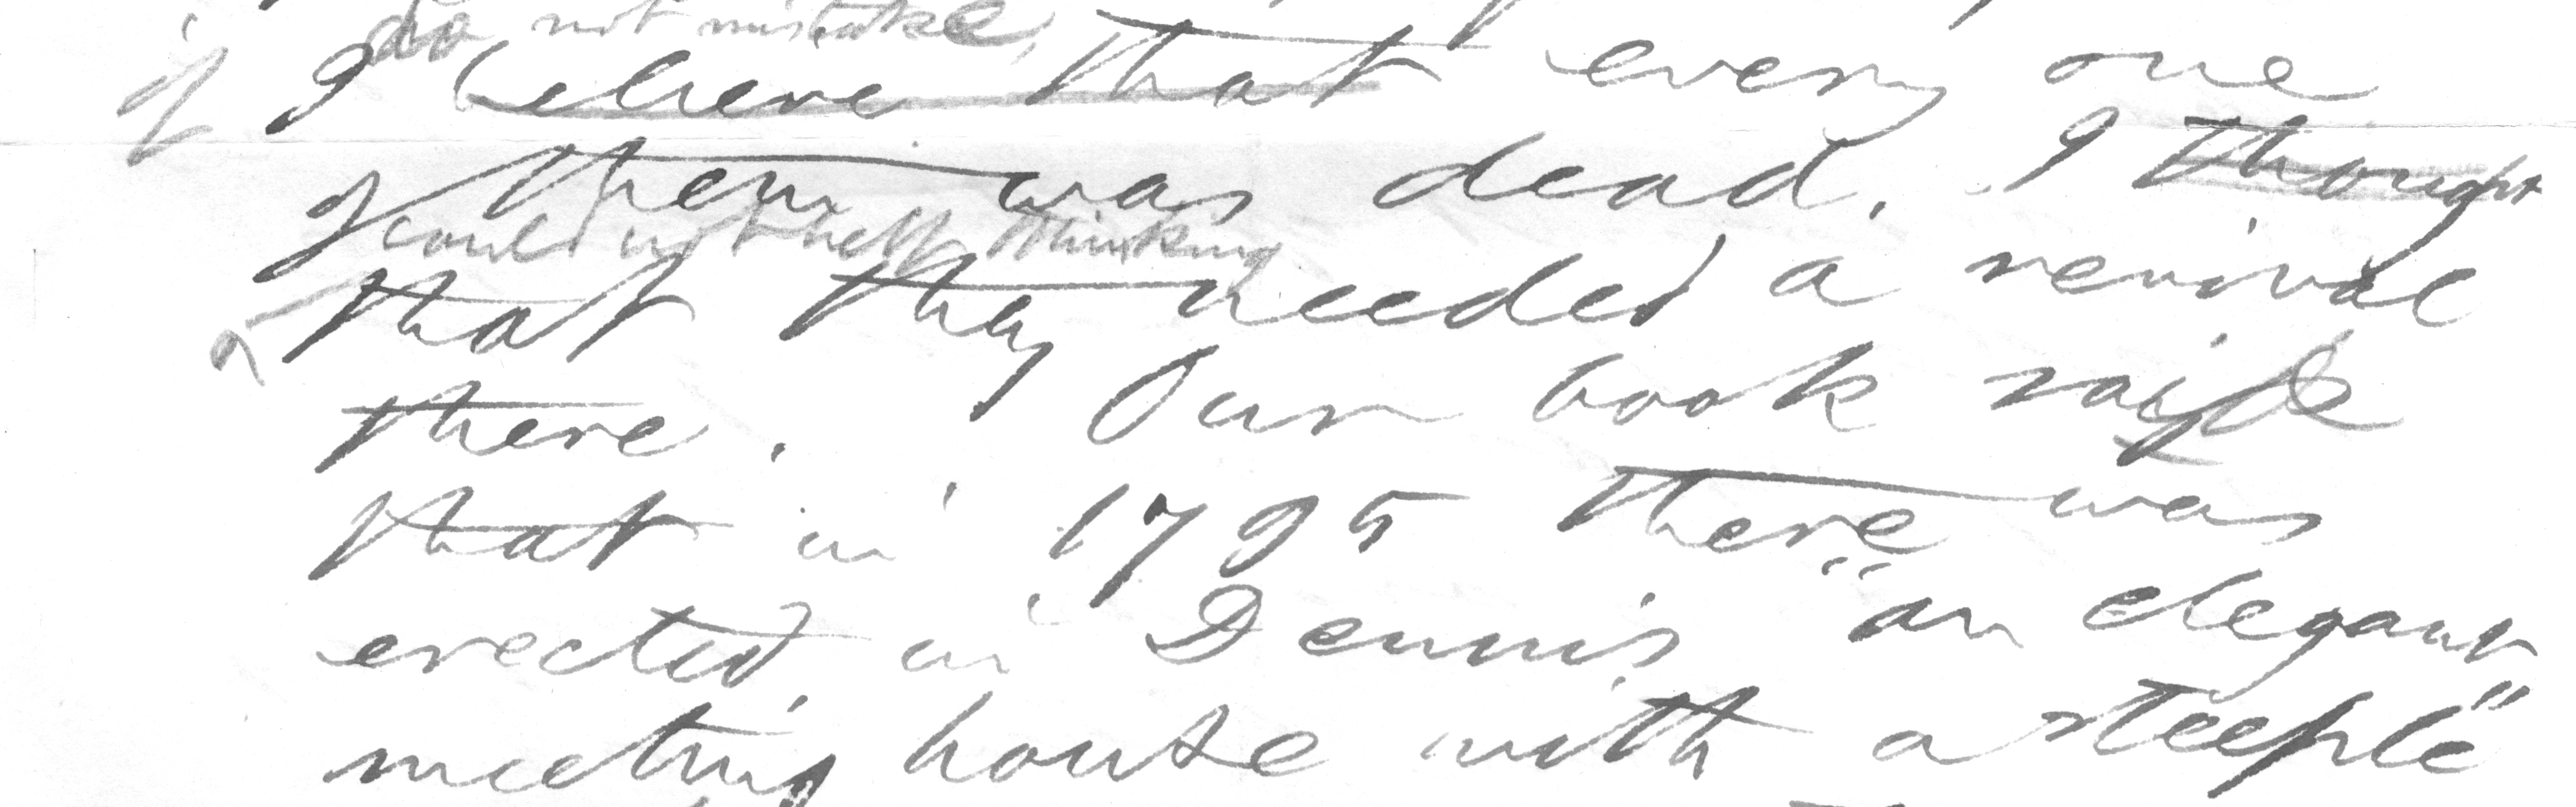 do not mistake,
if I believe that every one
of them was dead. I thought
could not help thinking
that they needed a revival
there. Our book said
that in 1795 there was
erected in Dennis, "an elegant
meeting house with a steeple"